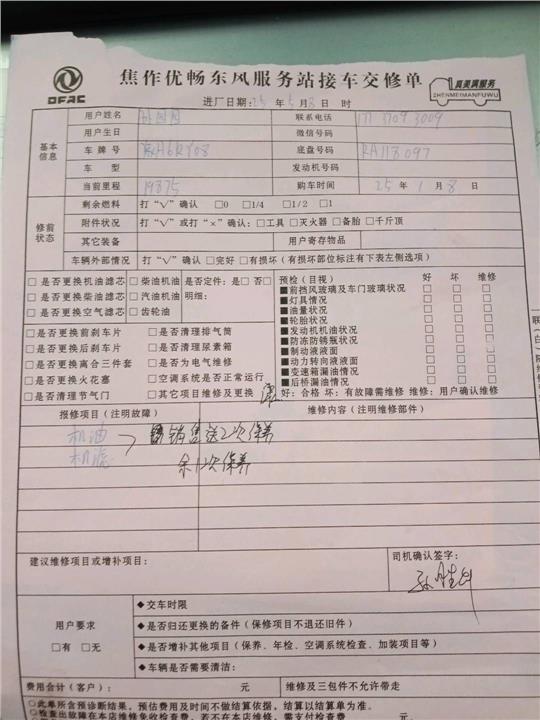 DFAC
焦作优畅东风服务站接车交修单
真美满服务
ZHENMEIMANFUWU
进厂日期:25 年 5 月 8 日 时
基本信息
用户姓名 联系电话
用户生日 微信号码
车牌号 底盘号码 RA118097
车型 发动机号码
当前里程 19875 购车时间 25 年 1 月 8 日
修前状态
剩余燃料 打“√”确认 □0 □1/4 □1/2 □1
附件状况 打“√”或打“×”确认:□工具 □灭火器 □备胎 □千斤顶
其它装备 用户寄存物品
车辆外部情况 打“√”确认 □完好 □有损坏(有损坏部位标注有下表左侧选项)
□是否更换机油滤芯 □柴油机油 是否定件:是□ 否□
□是否更换柴油滤芯 □汽油机油 明细:
□是否更换空气滤芯 □齿轮油
□是否更换前刹车片 □是否清理排气筒
□是否更换后刹车片 □是否清理尿素箱
□是否更换离合三件套 □是否为电气维修
□是否更换火花塞 □空调系统是否正常运行
□是否清理节气门 □其它项目维修及更换
预检(目视) 好 坏 维修
■前挡风玻璃及车门玻璃状况 □ □ □
■灯具情况 □ □ □
■油量状况 □ □ □
■轮胎状况 □ □ □
■发动机机油状况 □ □ □
■防冻防锈瓶状况 □ □ □
■制动液液面 □ □ □
■动力转向液液面 □ □ □
■变速箱漏油情况 □ □ □
■后桥漏油情况 □ □ □
好:合格 坏:有故障需维修 维修:用户确认维修
报修项目(注明故障) 维修内容(注明维修部件)
机油
机滤
销售送2次保养
余1次保养
建议维修项目或增补项目:
司机确认签字:
用户要求
□有 □无
◆交车时限
◆是否归还更换的备件(保修项目不退还旧件)
◆是否增补其他项目(保养、年检、空调系统检查、加装项目等)
◆车辆是否需要清洁:
费用合计(客户): 元 维修及三包件不允许带走
◇此单所含预诊断结果,预估费用及时间不做结算依据,结算以结算单为准。
◇检查出故障在本店维修免收检查费,若不在本店维修,需支付检查费